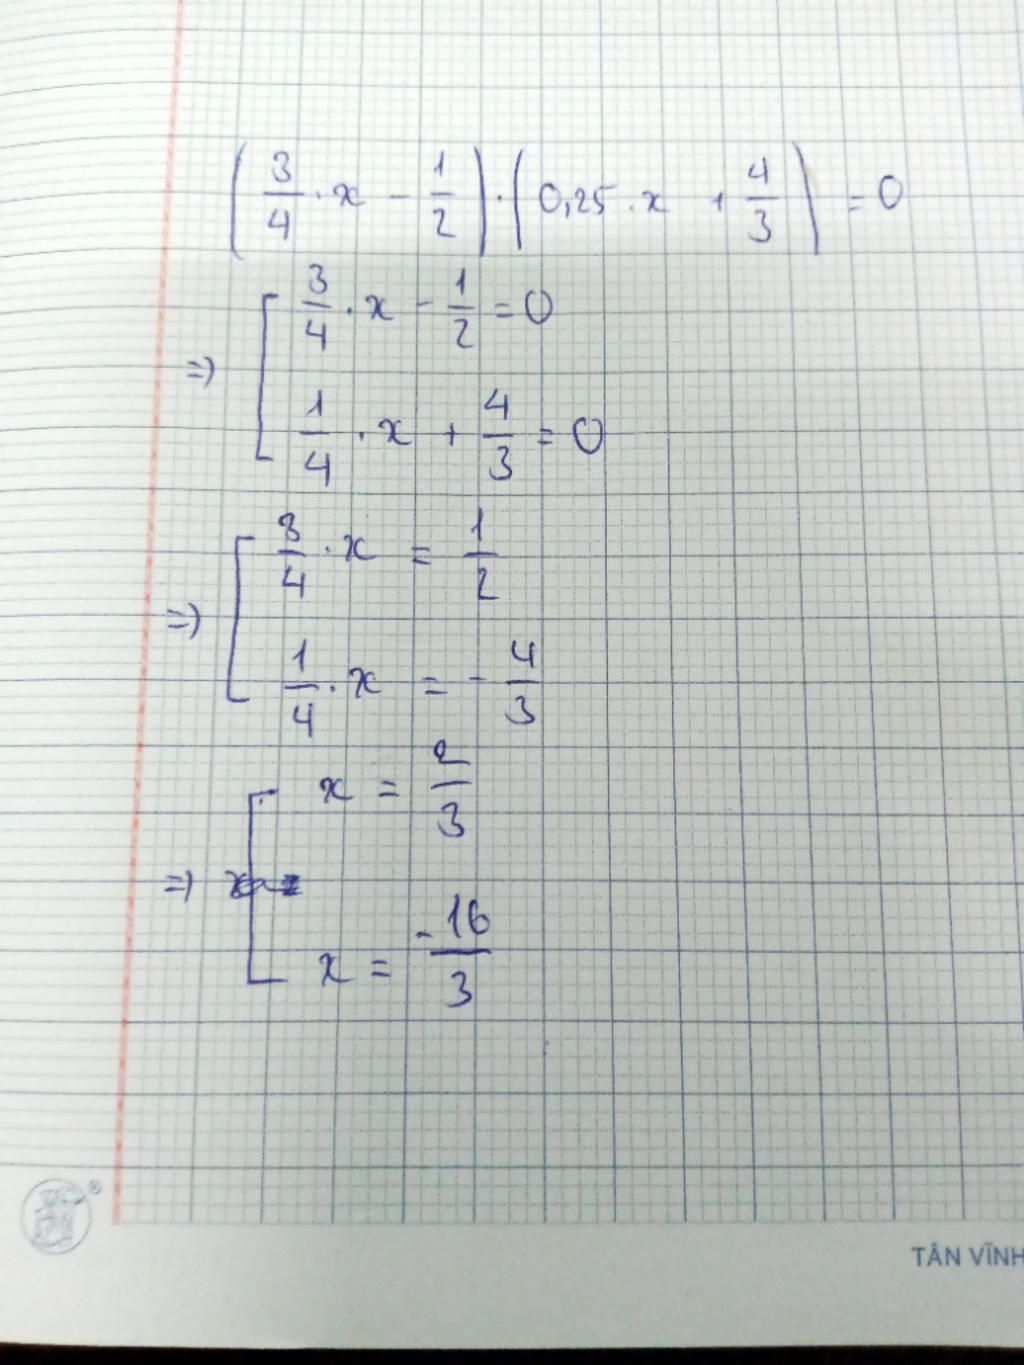 (3/4 . x - 1/2) . (0,25 . x + 4/3) = 0
=> [ 3/4 . x - 1/2 = 0
1/4 . x + 4/3 = 0
=> [ 3/4 . x = 1/2
1/4 . x = - 4/3
=> [ x = 2/3
x = -16/3
TÂN VĨNH